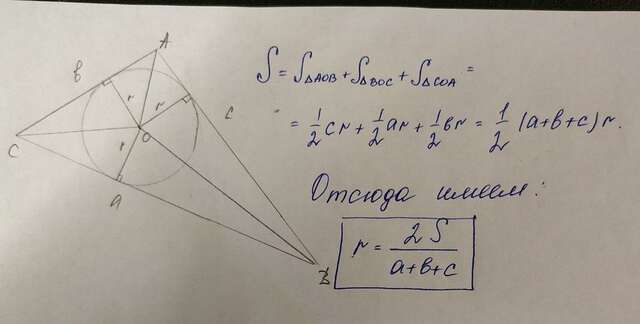 A
в
r
r
c
C
O
r
a
B
S = S△AOB + S△BOC + S△COA =
= 1/2 cr + 1/2 ar + 1/2 вr = 1/2 (a+в+c) r.
Отсюда имеем:
r = 2S/(a+в+c)